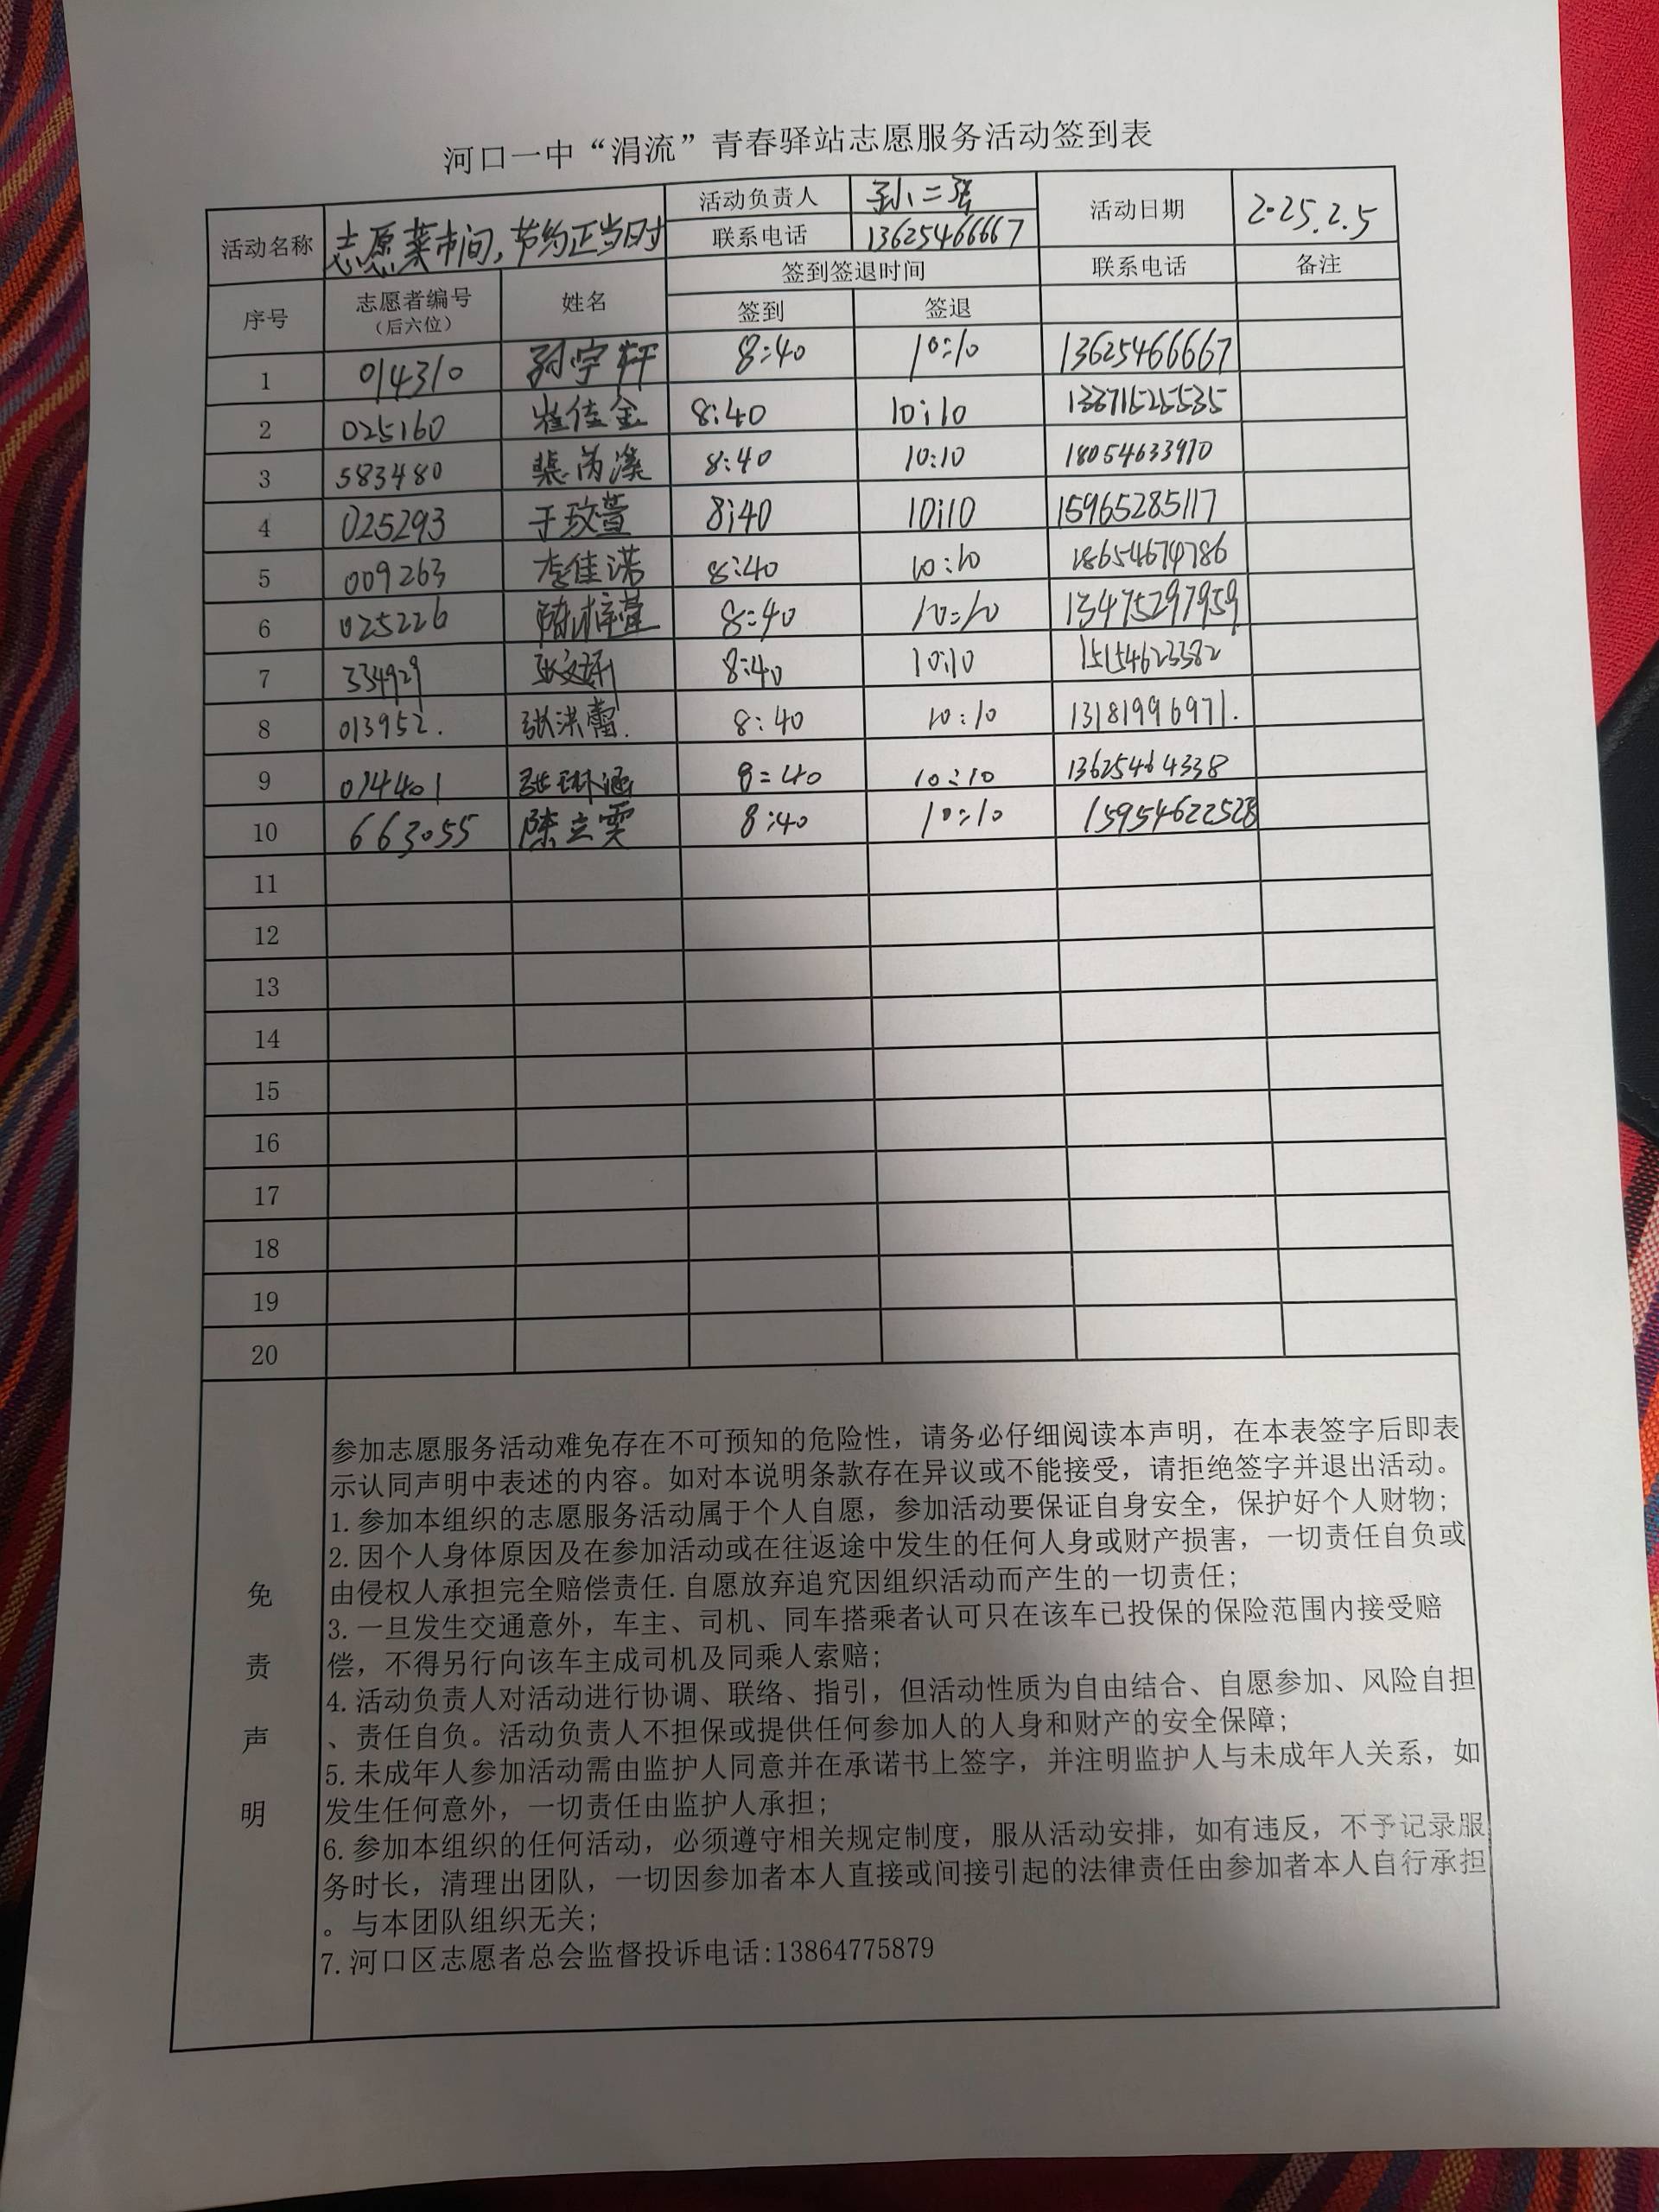 河口一中“涓流”青春驿站志愿服务活动签到表
活动名称 志愿菜市间,节约正当时 活动负责人 孙二强 活动日期 2025.2.5
联系电话 13625466667
序号 志愿者编号（后六位） 姓名 签到签退时间 联系电话 备注
签到 签退
1 014310 孙宇轩 8:40 10:10 13625466667
2 025160 崔佳金 8:40 10:10
3 583480 裴芮溪 8:40 10:10 18054633910
4 025293 于玟萱 8:40 10:10 15965285117
5 009263 李佳诺 8:40 10:10 18654674786
6 025226 陈梓萱 8:40 10:10 13475297959
7 334929 张文妍 8:40 10:10 15154623382
8 013952. 张洪蕾. 8:40 10:10 13181996971.
9 014401 张琳涵 8:40 10:10 13625464338
10 663055 陈立雯 8:40 10:10 15954622528
11
12
13
14
15
16
17
18
19
20
免责声明
参加志愿服务活动难免存在不可预知的危险性，请务必仔细阅读本声明，在本表签字后即表
示认同声明中表述的内容。如对本说明条款存在异议或不能接受，请拒绝签字并退出活动。
1.参加本组织的志愿服务活动属于个人自愿，参加活动要保证自身安全，保护好个人财物；
2.因个人身体原因及在参加活动或在往返途中发生的任何人身或财产损害，一切责任自负或
由侵权人承担完全赔偿责任.自愿放弃追究因组织活动而产生的一切责任；
3.一旦发生交通意外，车主、司机、同车搭乘者认可只在该车已投保的保险范围内接受赔
偿，不得另行向该车主成司机及同乘人索赔；
4.活动负责人对活动进行协调、联络、指引，但活动性质为自由结合、自愿参加、风险自担
、责任自负。活动负责人不担保或提供任何参加人的人身和财产的安全保障；
5.未成年人参加活动需由监护人同意并在承诺书上签字，并注明监护人与未成年人关系，如
发生任何意外，一切责任由监护人承担；
6.参加本组织的任何活动，必须遵守相关规定制度，服从活动安排，如有违反，不予记录服
务时长，清理出团队，一切因参加者本人直接或间接引起的法律责任由参加者本人自行承担
。与本团队组织无关；
7.河口区志愿者总会监督投诉电话:13864775879